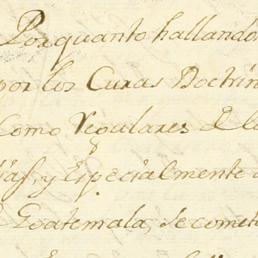 Porquanto hallando
por los Curas Doctrin
Como Regulares de l
ias, y Especialmente
Goatemala, se comet